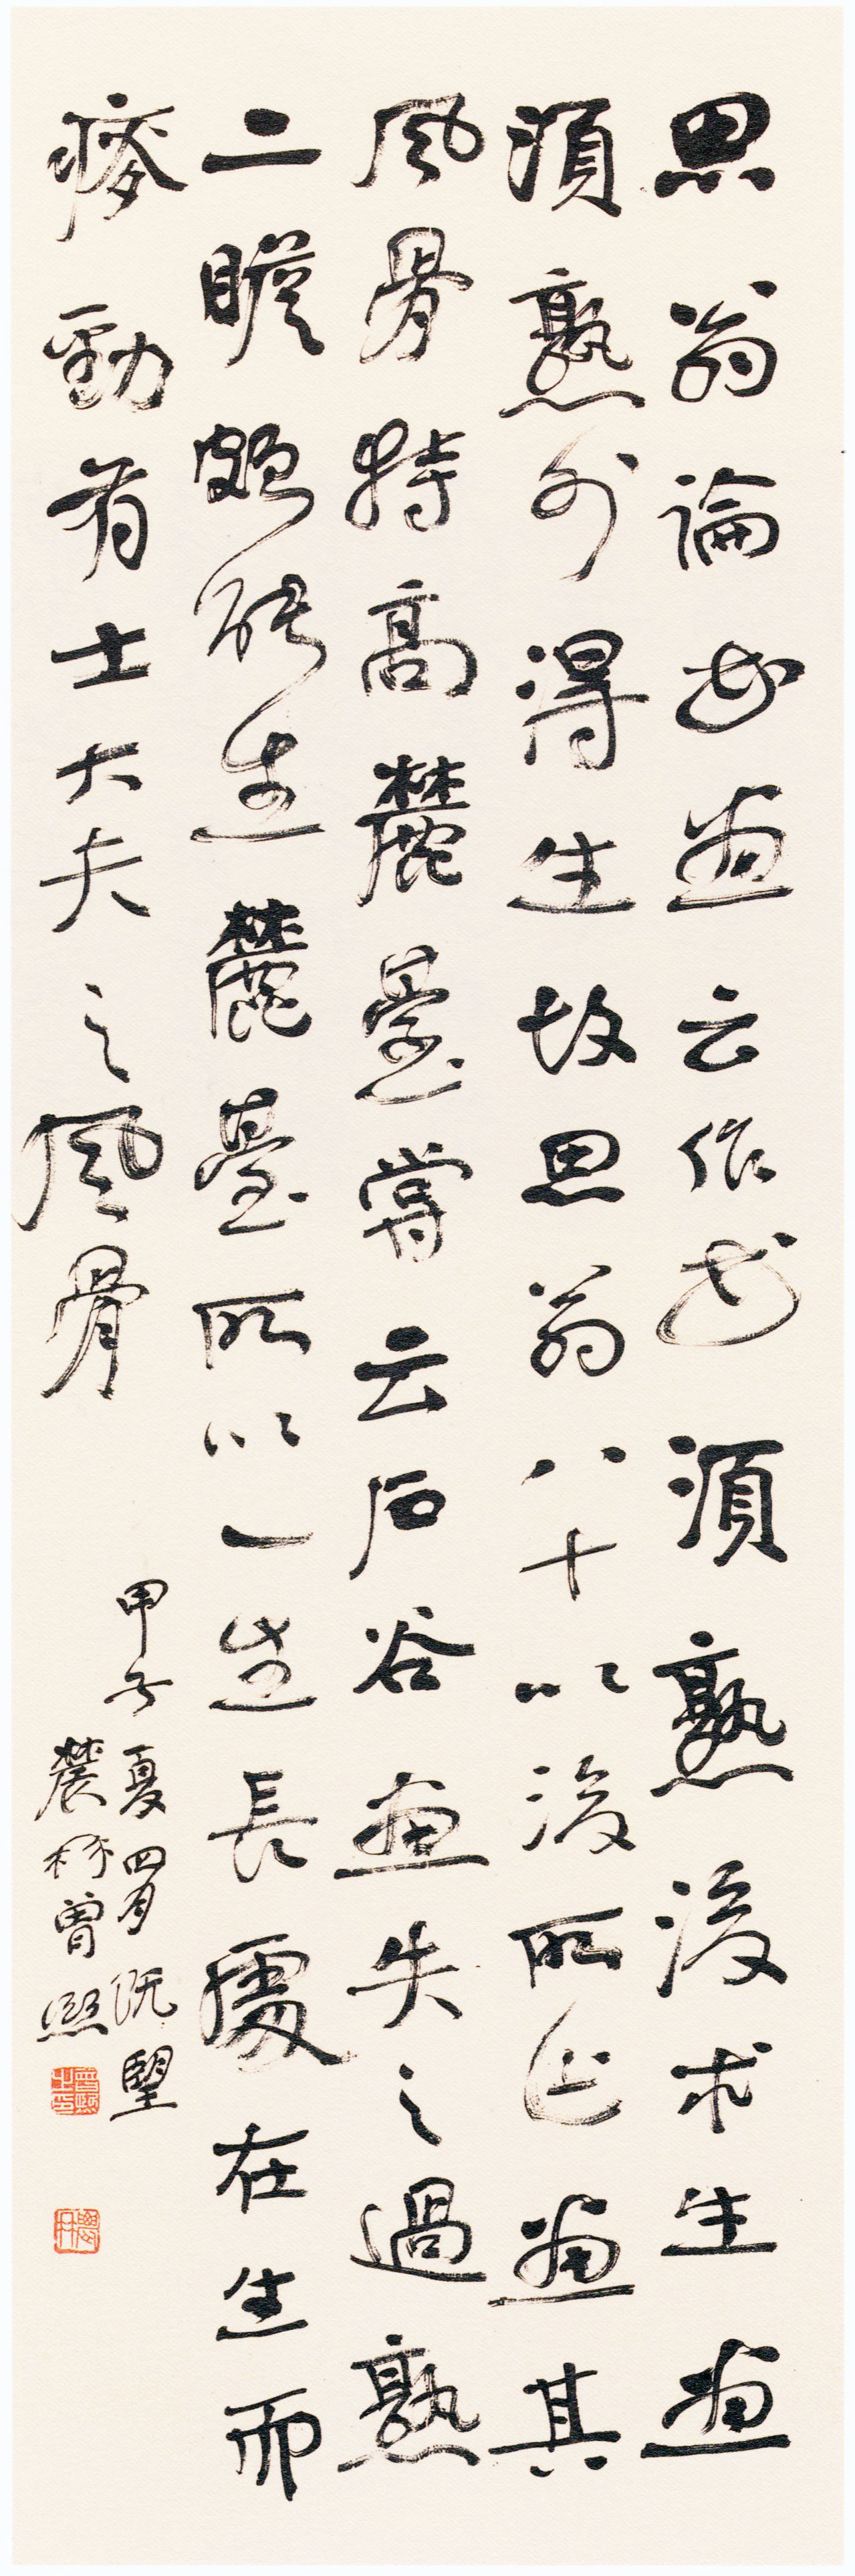 思翁論書畫云作書須熟後求生畫
須熟外得生故思翁八十以後所作畫其
風骨特高麓臺嘗云石谷畫失之過熟
二瞻頗能生麓臺所以一生長處在生而
瘦勁有士大夫之風骨
甲子夏四月既望
農髯曾熙
曾熙之印
農髯